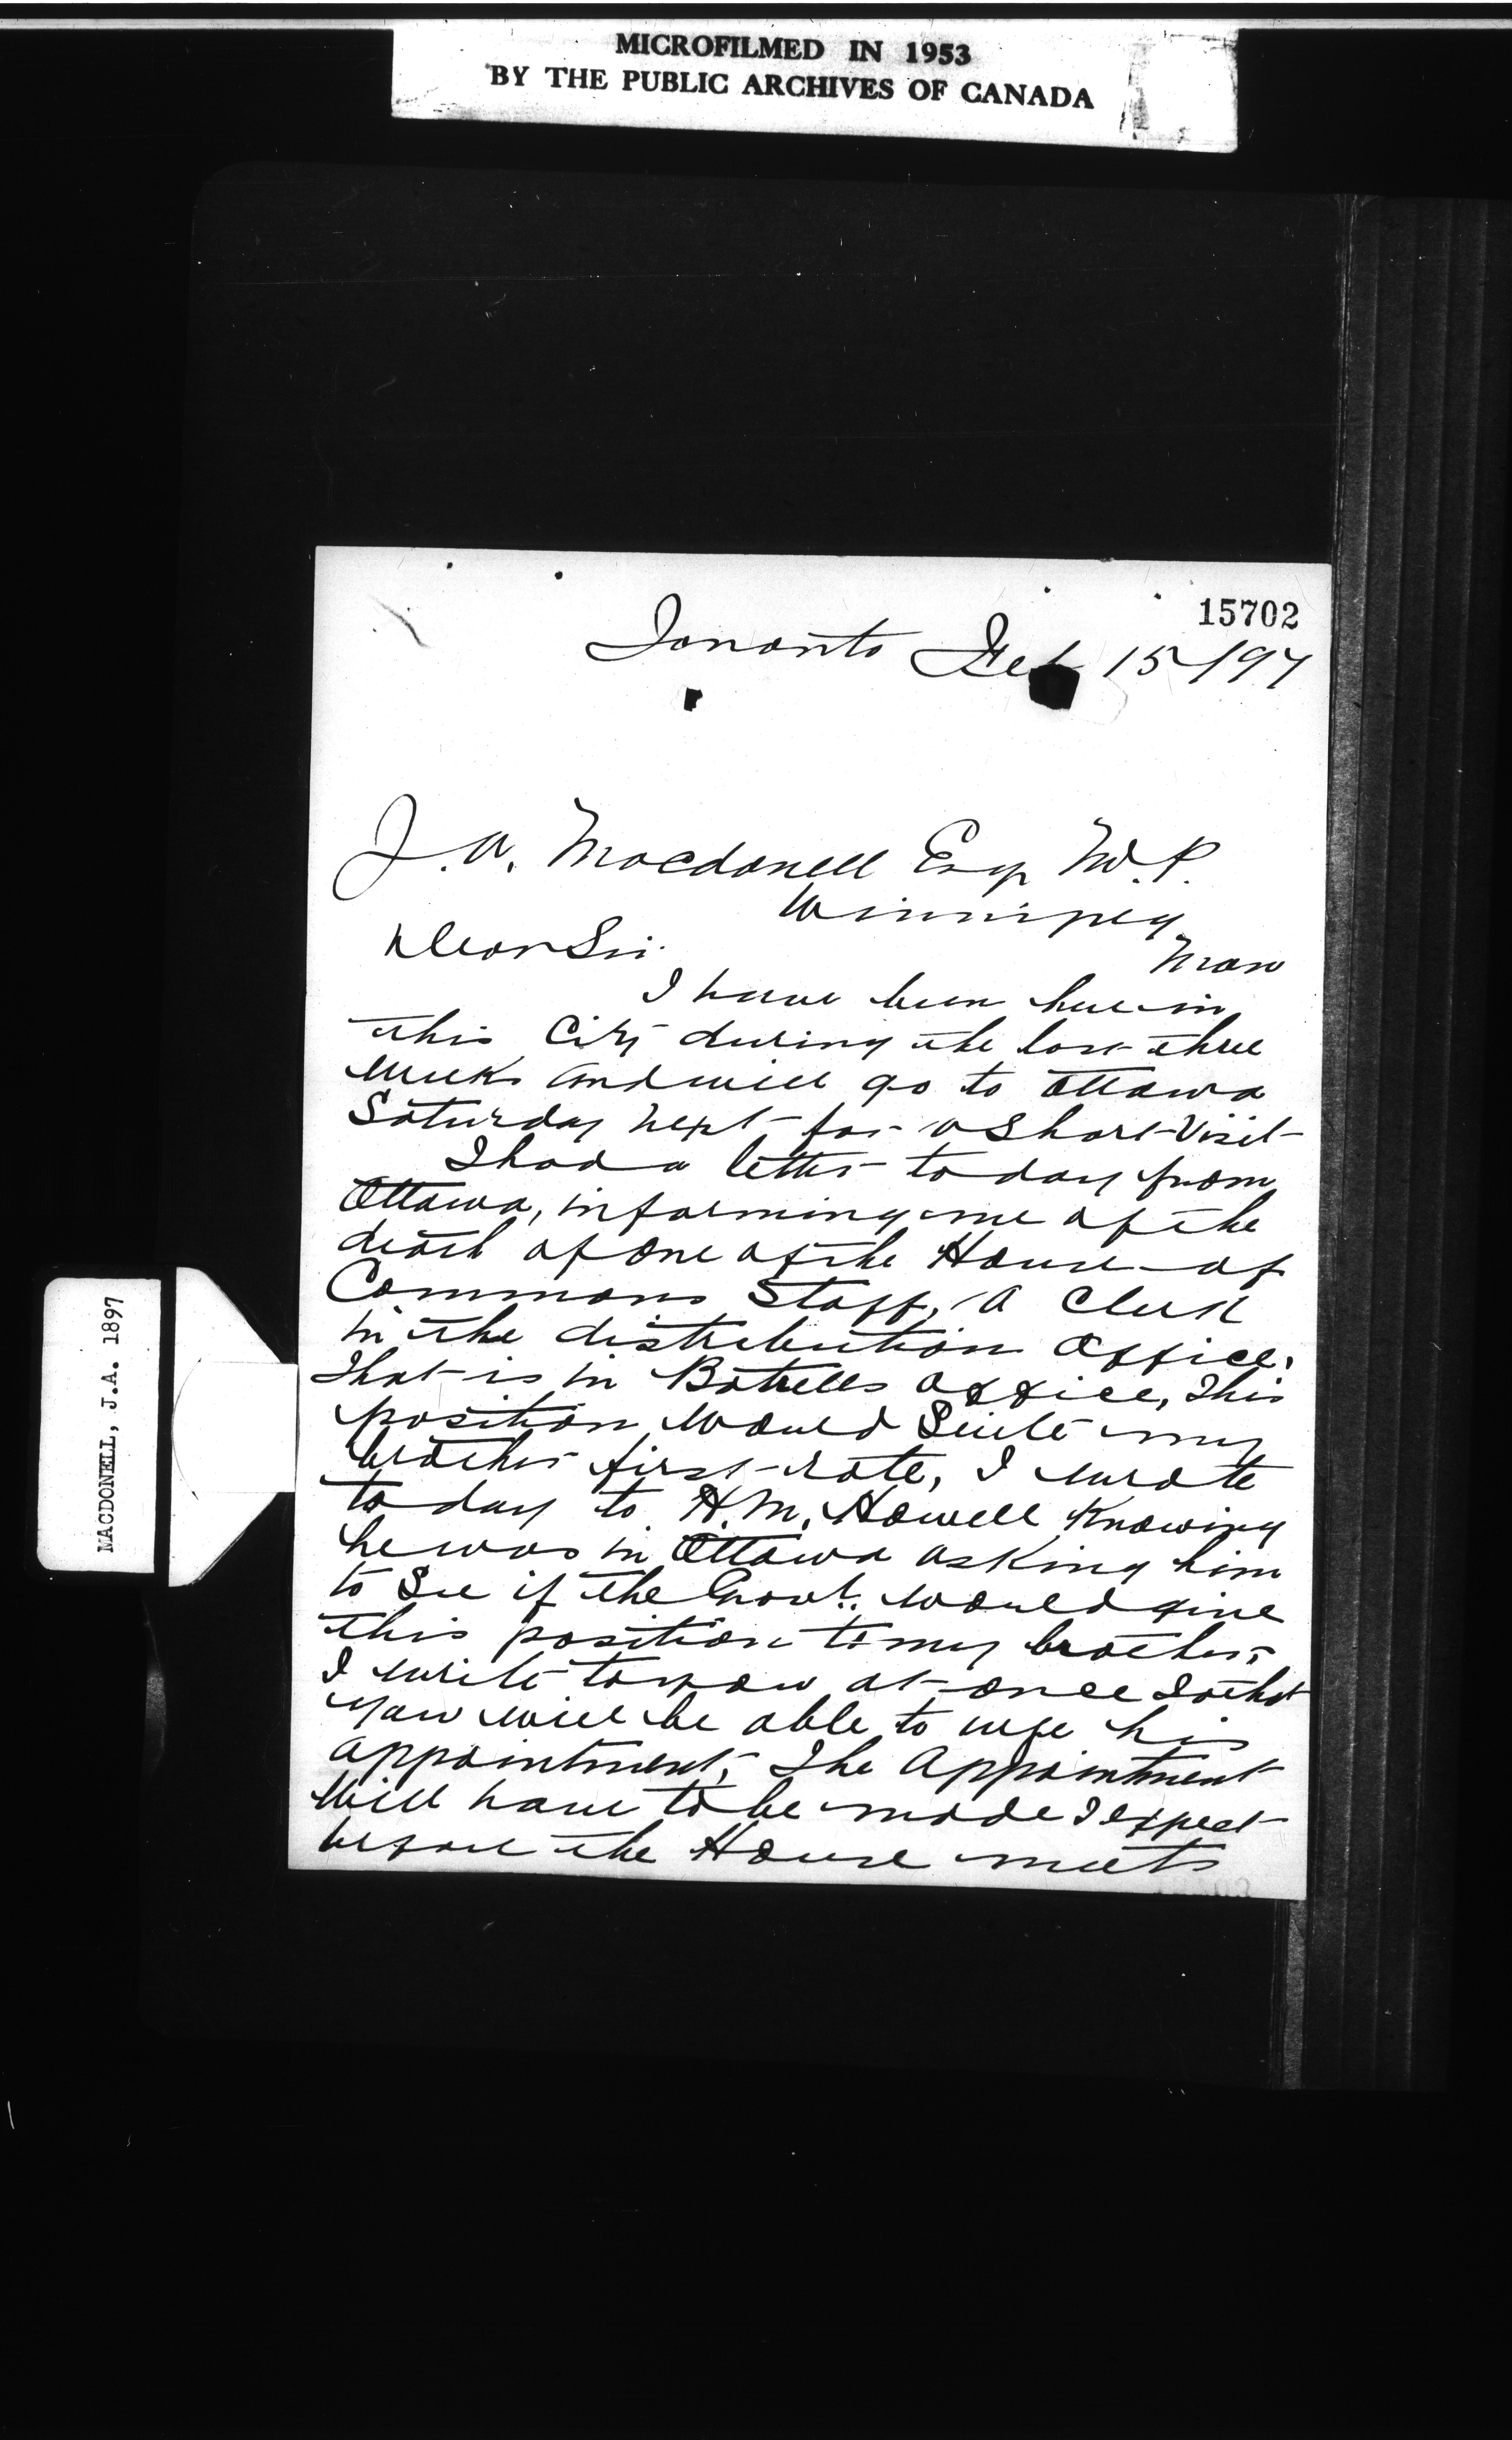 MICROFILMED IN 1953
BY THE PUBLIC ARCHIVES OF CANADA
15702
Toronto Feb 15/97
J. A. Macdonell Esq M.P.
Winnipeg
Man
Dear Sir.
I have been here in
this City during the last three
weeks and will go to Ottawa
Saturday next for a Short Visit
I had a letter to day from
Ottawa, informing me of the
death of one of the House of
Commons Staff, A Clerk
in the distribution Office,
that is in Botrells office, This
position would Suite my
brother first-rate, I wrote
to day to H.M. Howell Knowing
he was in Ottawa asking him
to See if the Govt. would give
this position to my brother,
I write to you at once So that
you will be able to urge his
appointment, The Appointment
will have to be made I expect
before the House meets
MACDONELL, J.A. 1897